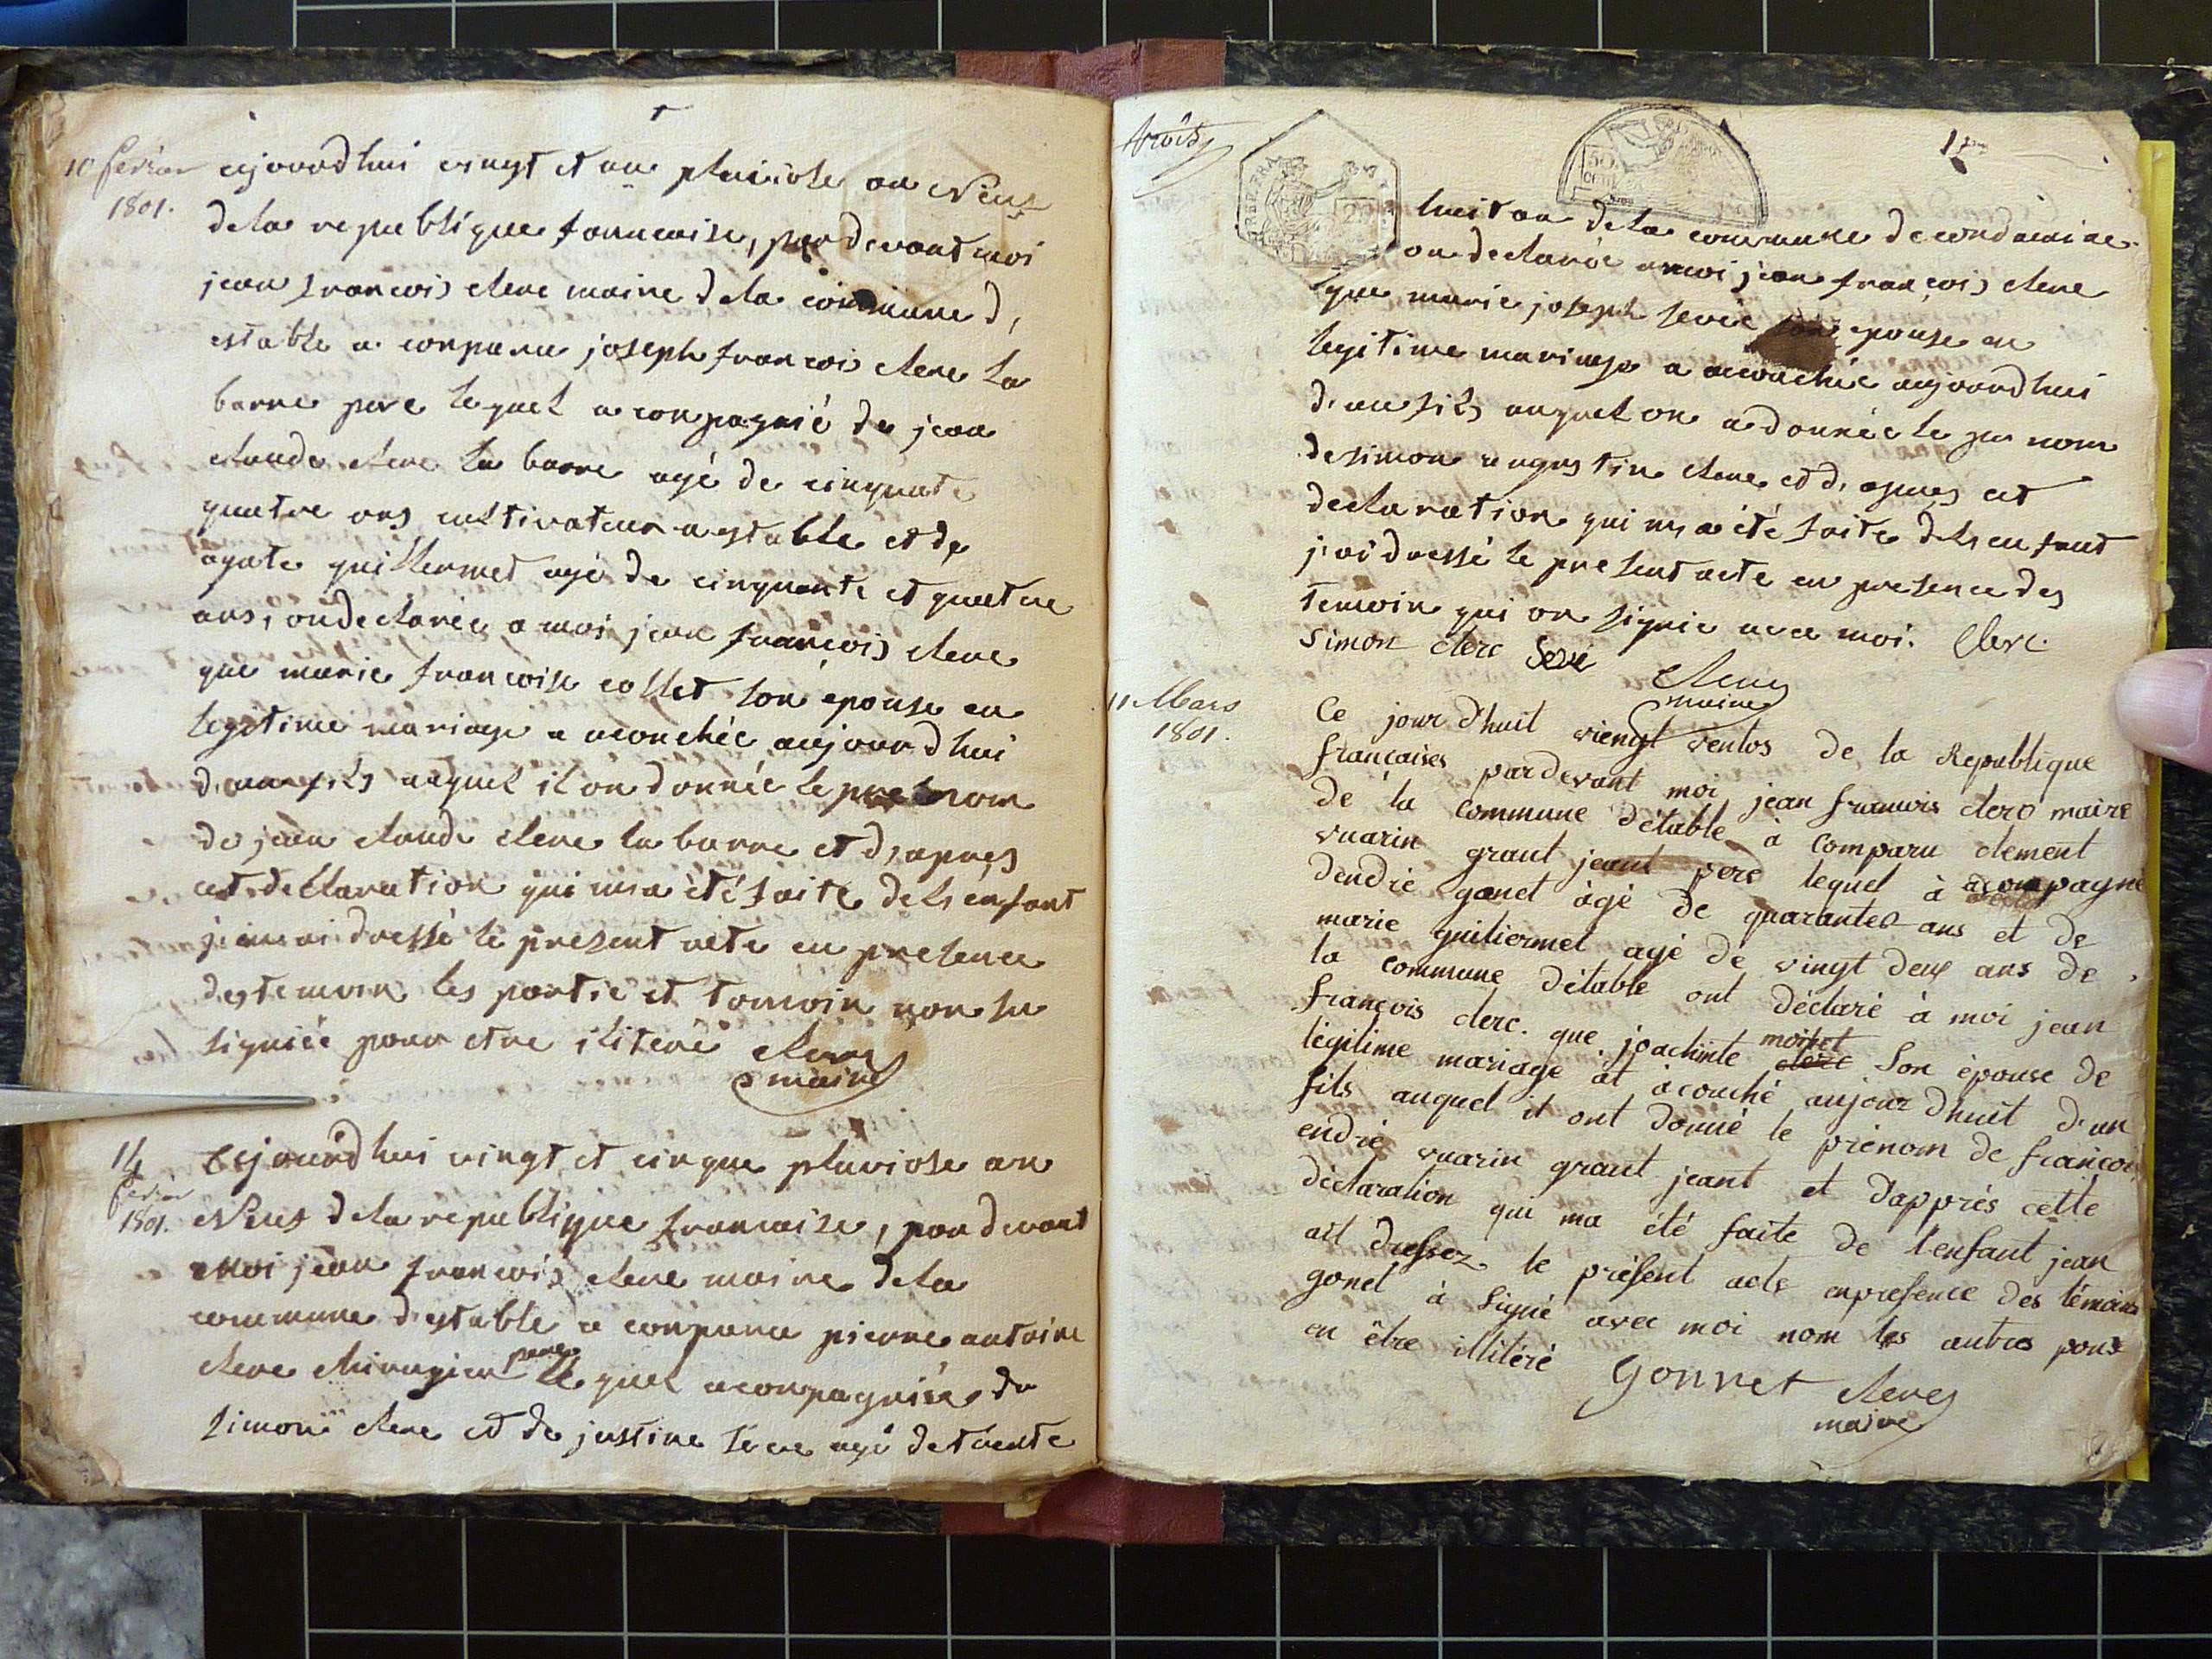 10 fevrier
1801.
aijourdhui vingt et un pluviose an Neuf
dela republique francoise, pardevant moi
jean francois clerc maire dela commune d,
estable a conparu joseph francois clerc la
barre pere lequel aconpagnié de jean
claude clerc la barre agé de cinquate
quatre ans cultivateur a estable et de
agate guillermet agé de cinquante et quatre
ans, on declarée a moi jean françois clerc
que marie francoise collet son epouse en
legitime mariage a acouchée aujourdhui
d,un fils auquel il on donnée le prenom
de jean claude clerc la barre et d,apres
cet declaration qui m,a été faite dels enfant
dressé le present acte en presence
des temoin les partie et temoin non su
signiée pour etre iliteré clerc
maire
14
fevrier
1801.
cejourdhui vingt et cinque pluviose an
Neuf dela republique francoise, pardevant
moi jean francois clerc maire dela
commune d,estable a conparu pierre antoine
clerc chirugien pere le quel aconpagniée de
simon clerc et de justine seve agé de trente
trois
huit an dela commune de condamine
on declarée a moi jean françois clerc
que marie joseph sevie son epouse en
legitime mariage a acouchée aujourdhui
d,un fils auquel on a donnée le pre nom
de simon augustin clerc et d,apres cet
declaration qui m,a été faite dels enfant
j,ai dressé le present acte en presence des
temoin qui on signié avec moi. Clerc.
Simon clerc Seve clerc
maire
11 Mars
1801.
Ce jour d'huit viengt ventos de la Republique
francaises pardevant moi jean francois clerc maire
de la commune d'étable à comparu clement
vuarin grant jeant pere lequel à acompagné
dendré gonet àgé de quarantes ans et de
marie guiliermet agé de vingt deux ans de
la commune d'étable ont déclaré à moi jean
françois clerc. que joachinte clerc moinet son épouse de
légitime mariage àt àcouché aujour d'huit d'un
fils auquel il ont donné le prénom de françois
endré vuarin grant jeant et dapprés cette
déclaration qui ma été faite de l'enfant jean
ait dressez le présent acte enpresence des témoins
gonet à signé avec moi nom les autres pour
en être illitéré Gonnet clerc
maire